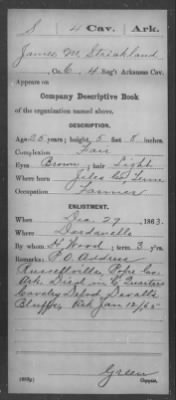 S 4 Cav. Ark.
James M. Strickland
Co. C, 4 Reg't Arkansas Cav.
Appears on
Company Descriptive Book
of the organization named above.
DESCRIPTION.
Age 25 years; height 5 feet 8 inches.
Complexion Fair
Eyes Brown; hair Light
Where born Giles Co., Tenn
Occupation Farmer
ENLISTMENT.
When Dec. 29, 1863.
Where Dardanelle
By whom H. Wood; term 3 y'rs.
Remarks: P.O. Address
Russellville, Pope Co.
Ark. Died in Quarters
Cavalry Depot, Devall's
Bluff, Ark Jan 12/65
Green
Copyist.